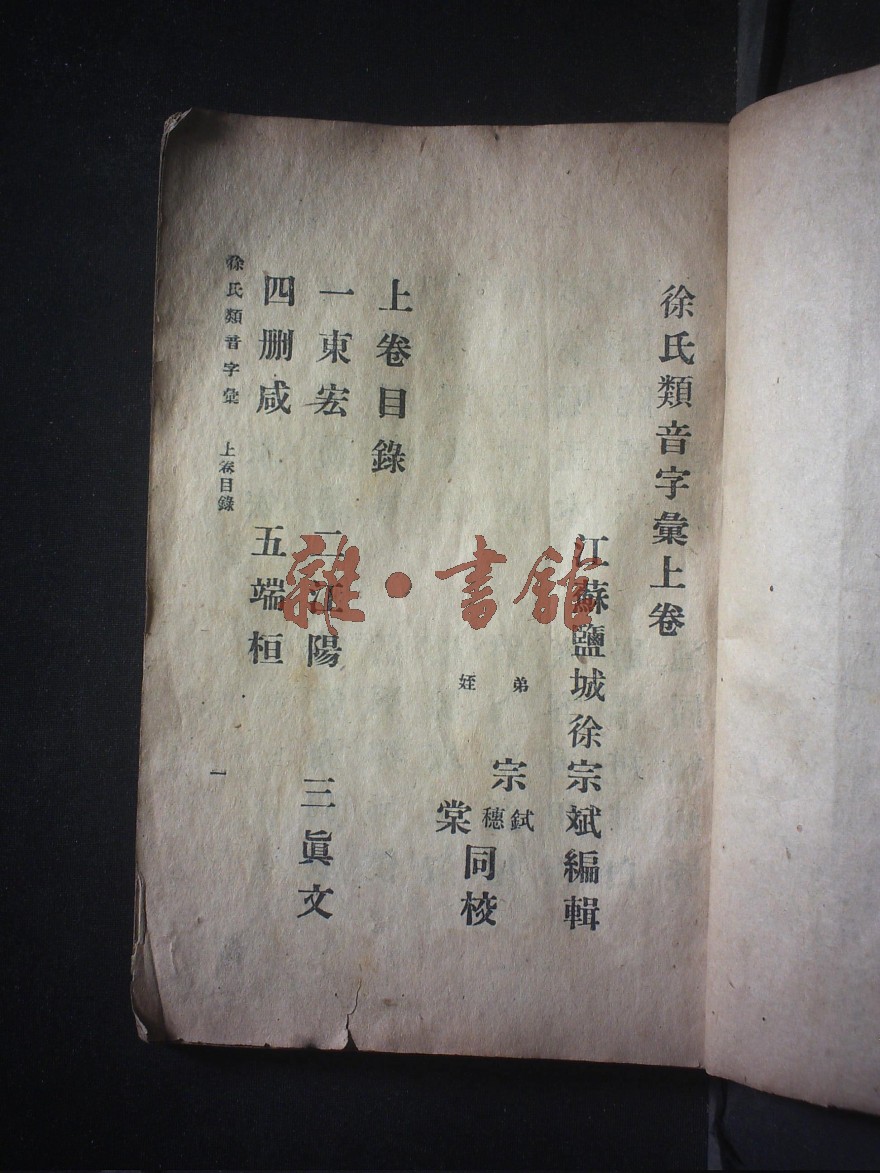 徐氏類音字彙上卷
江蘇鹽城徐宗斌編輯
弟 宗鉽穗
姪 棠
同校
上卷目錄
一東宏 二江陽 三眞文
四刪咸 五端桓
徐氏類音字彙 上卷目錄
一
雜·書館